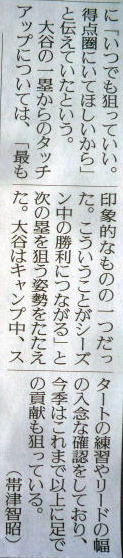 に「いつでも狙っていい。
得点圏にいてほしいから」
と伝えていたという。
　大谷の一塁からのタッチ
アップについては、「最も
印象的なものの一つだっ
た。こういうことがシーズ
ン中の勝利につながる」と
次の塁を狙う姿勢をたたえ
た。大谷はキャンプ中、ス
タートの練習やリードの幅
の入念な確認をしており、
今季はこれまで以上に足で
の貢献も狙っている。
（帯津智昭）